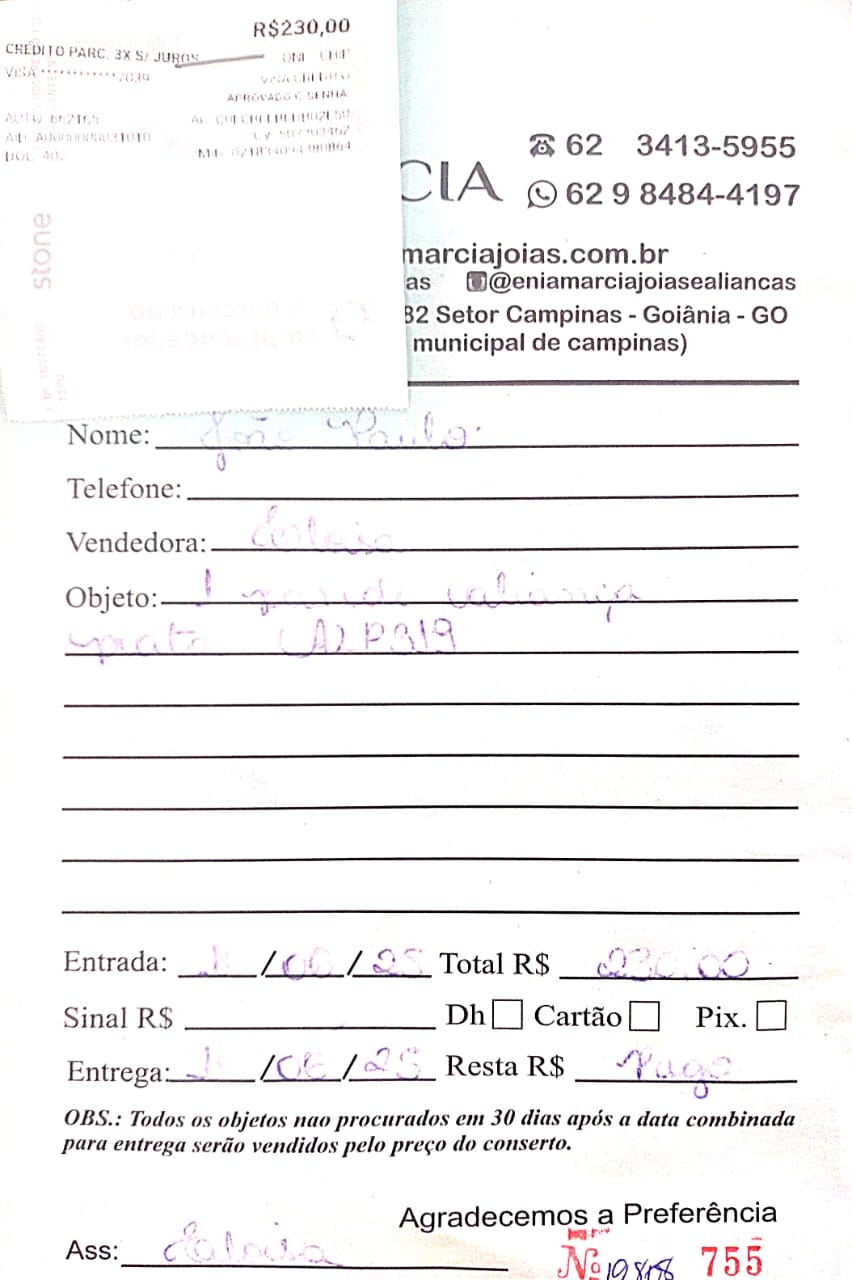 R$230,00
CRÉDITO PARC. 3X S/ JUROS
ONL CHIP
VISA ************7039
VISA CREDITO
APROVADO C SENHA
AUTO 662165
AID A0000000031010
DOC 407
stone
CIA
62 3413-5955
62 9 8484-4197
marciajoias.com.br
as @eniamarciajoiasealiancas
32 Setor Campinas - Goiânia - GO
municipal de campinas)
Nome: João Paulo
Telefone:
Vendedora:
Objeto: 1 par de aliança
prata ALP319
Entrada: /06/25 Total R$ 230,00
Sinal R$ Dh Cartão Pix.
Entrega: /06/25 Resta R$ Pago
OBS.: Todos os objetos nao procurados em 30 dias após a data combinada
para entrega serão vendidos pelo preço do conserto.
Agradecemos a Preferência
Ass:
Nº 755